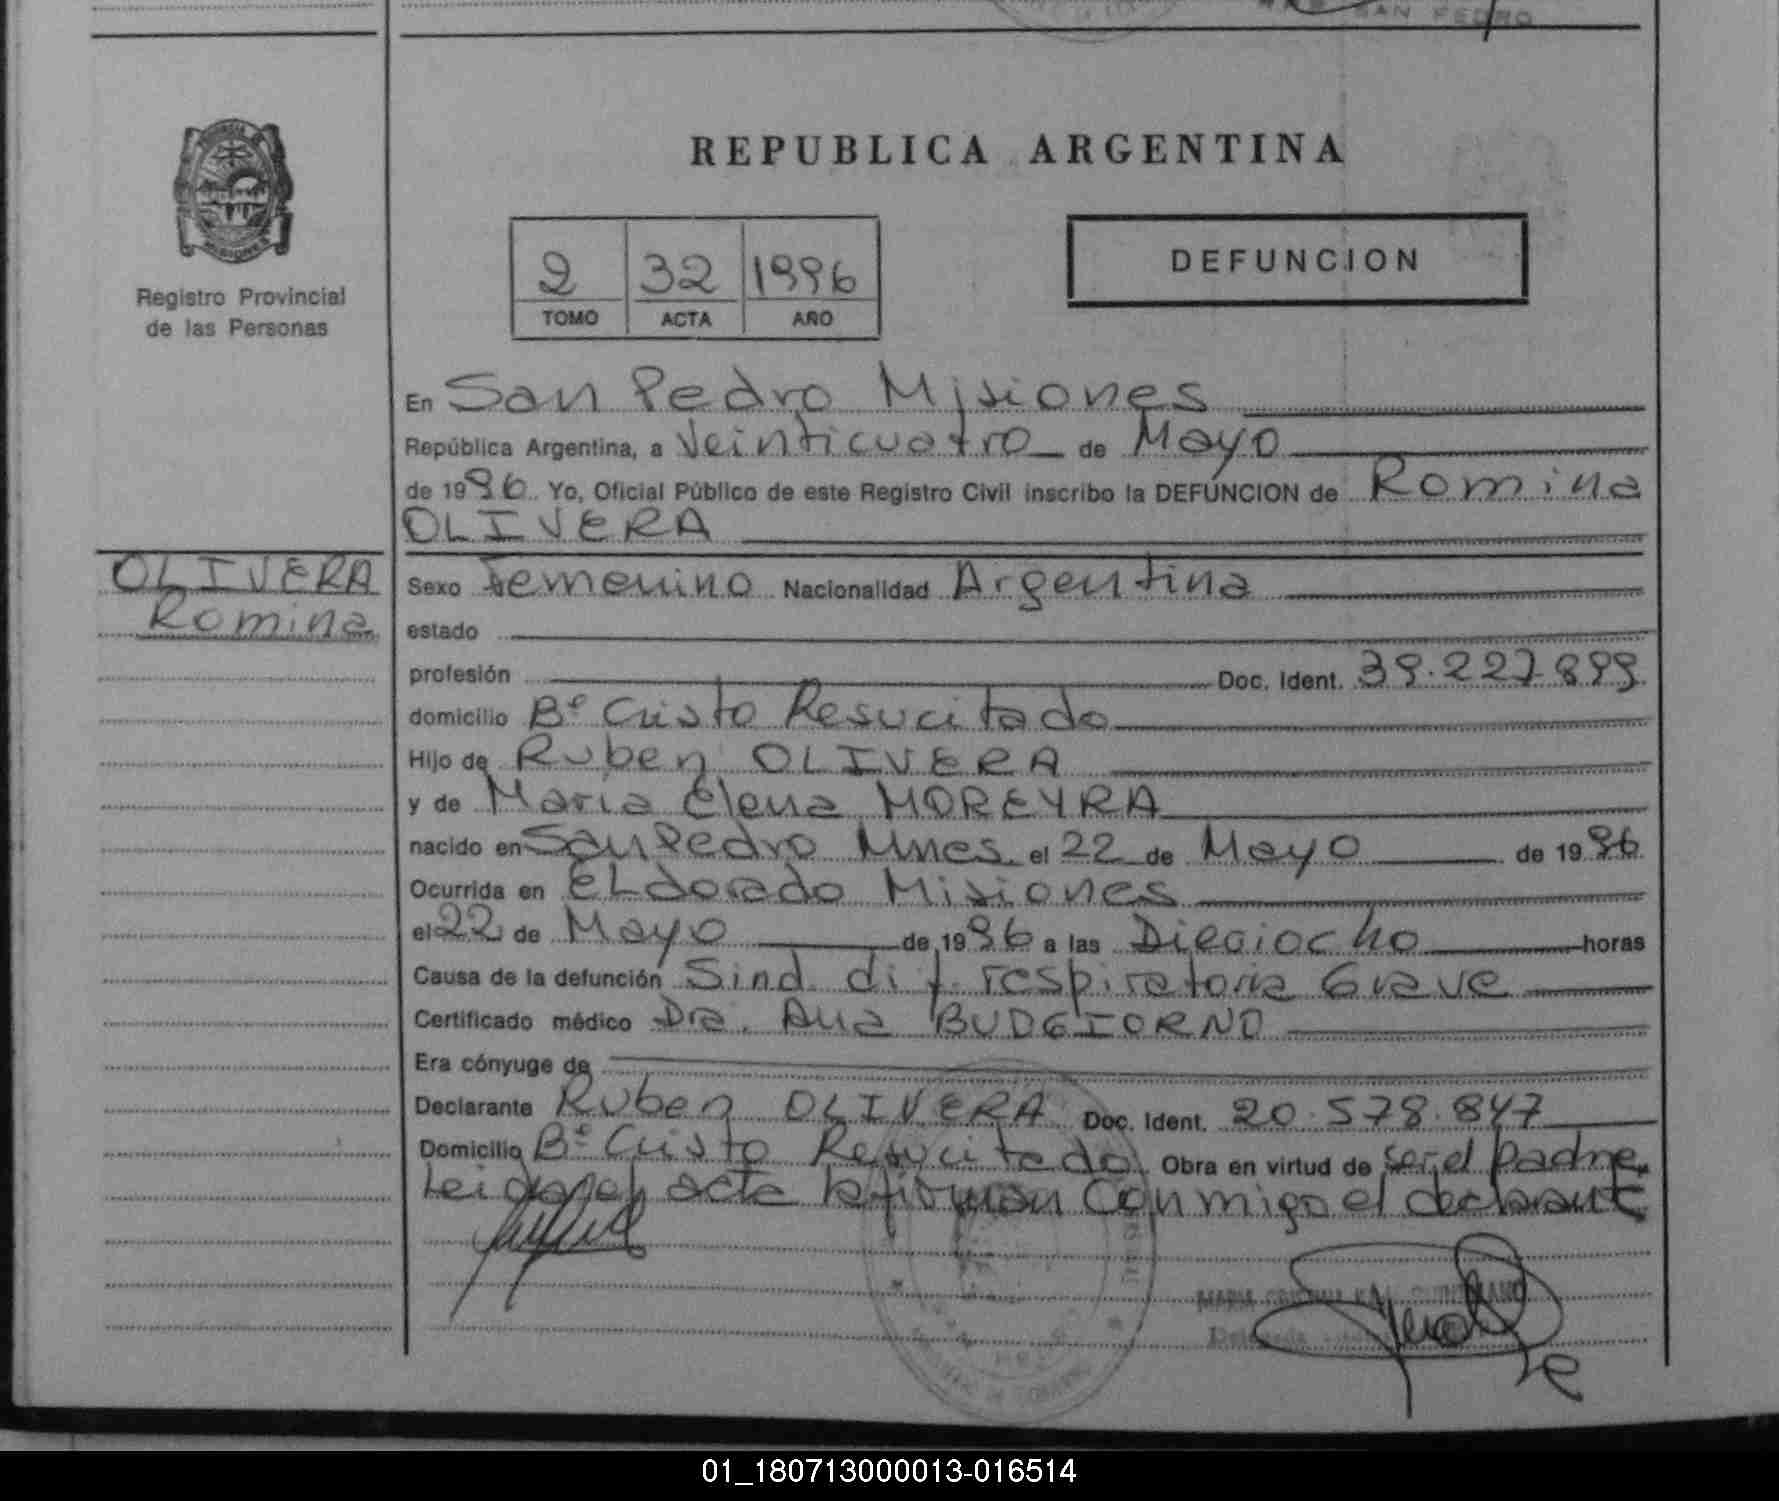 SAN PEDRO
REPUBLICA ARGENTINA
Registro Provincial
de las Personas
2 32 1996
TOMO ACTA AÑO
DEFUNCION
En San Pedro Misiones
República Argentina, a Veinticuatro de Mayo
de 1996 Yo, Oficial Público de este Registro Civil inscribo la DEFUNCION de Romina
OLIVERA
OLIVERA
Romina
Sexo Femenino Nacionalidad Argentina
estado
profesión Doc. Ident. 39.227.899
domicilio Bº Cristo Resucitado
Hijo de Ruben OLIVERA
y de Maria Elena MOREYRA
nacido en San Pedro Mnes. el 22 de Mayo de 1996
Ocurrida en ELdorado Misiones
el 22 de Mayo de 1996 a las Dieciocho horas
Causa de la defunción Sind. dif. respiratoria Grave
Certificado médico Dra. Ana BUDGIORNO
Era cónyuge de
Declarante Ruben OLIVERA Doc. Ident. 20.578.847
Domicilio Bº Cristo Resucitado Obra en virtud de ser el padre.
Leida el acta la firman conmigo el declarante
MARIA CRISTINA
Delegada
01_180713000013-016514